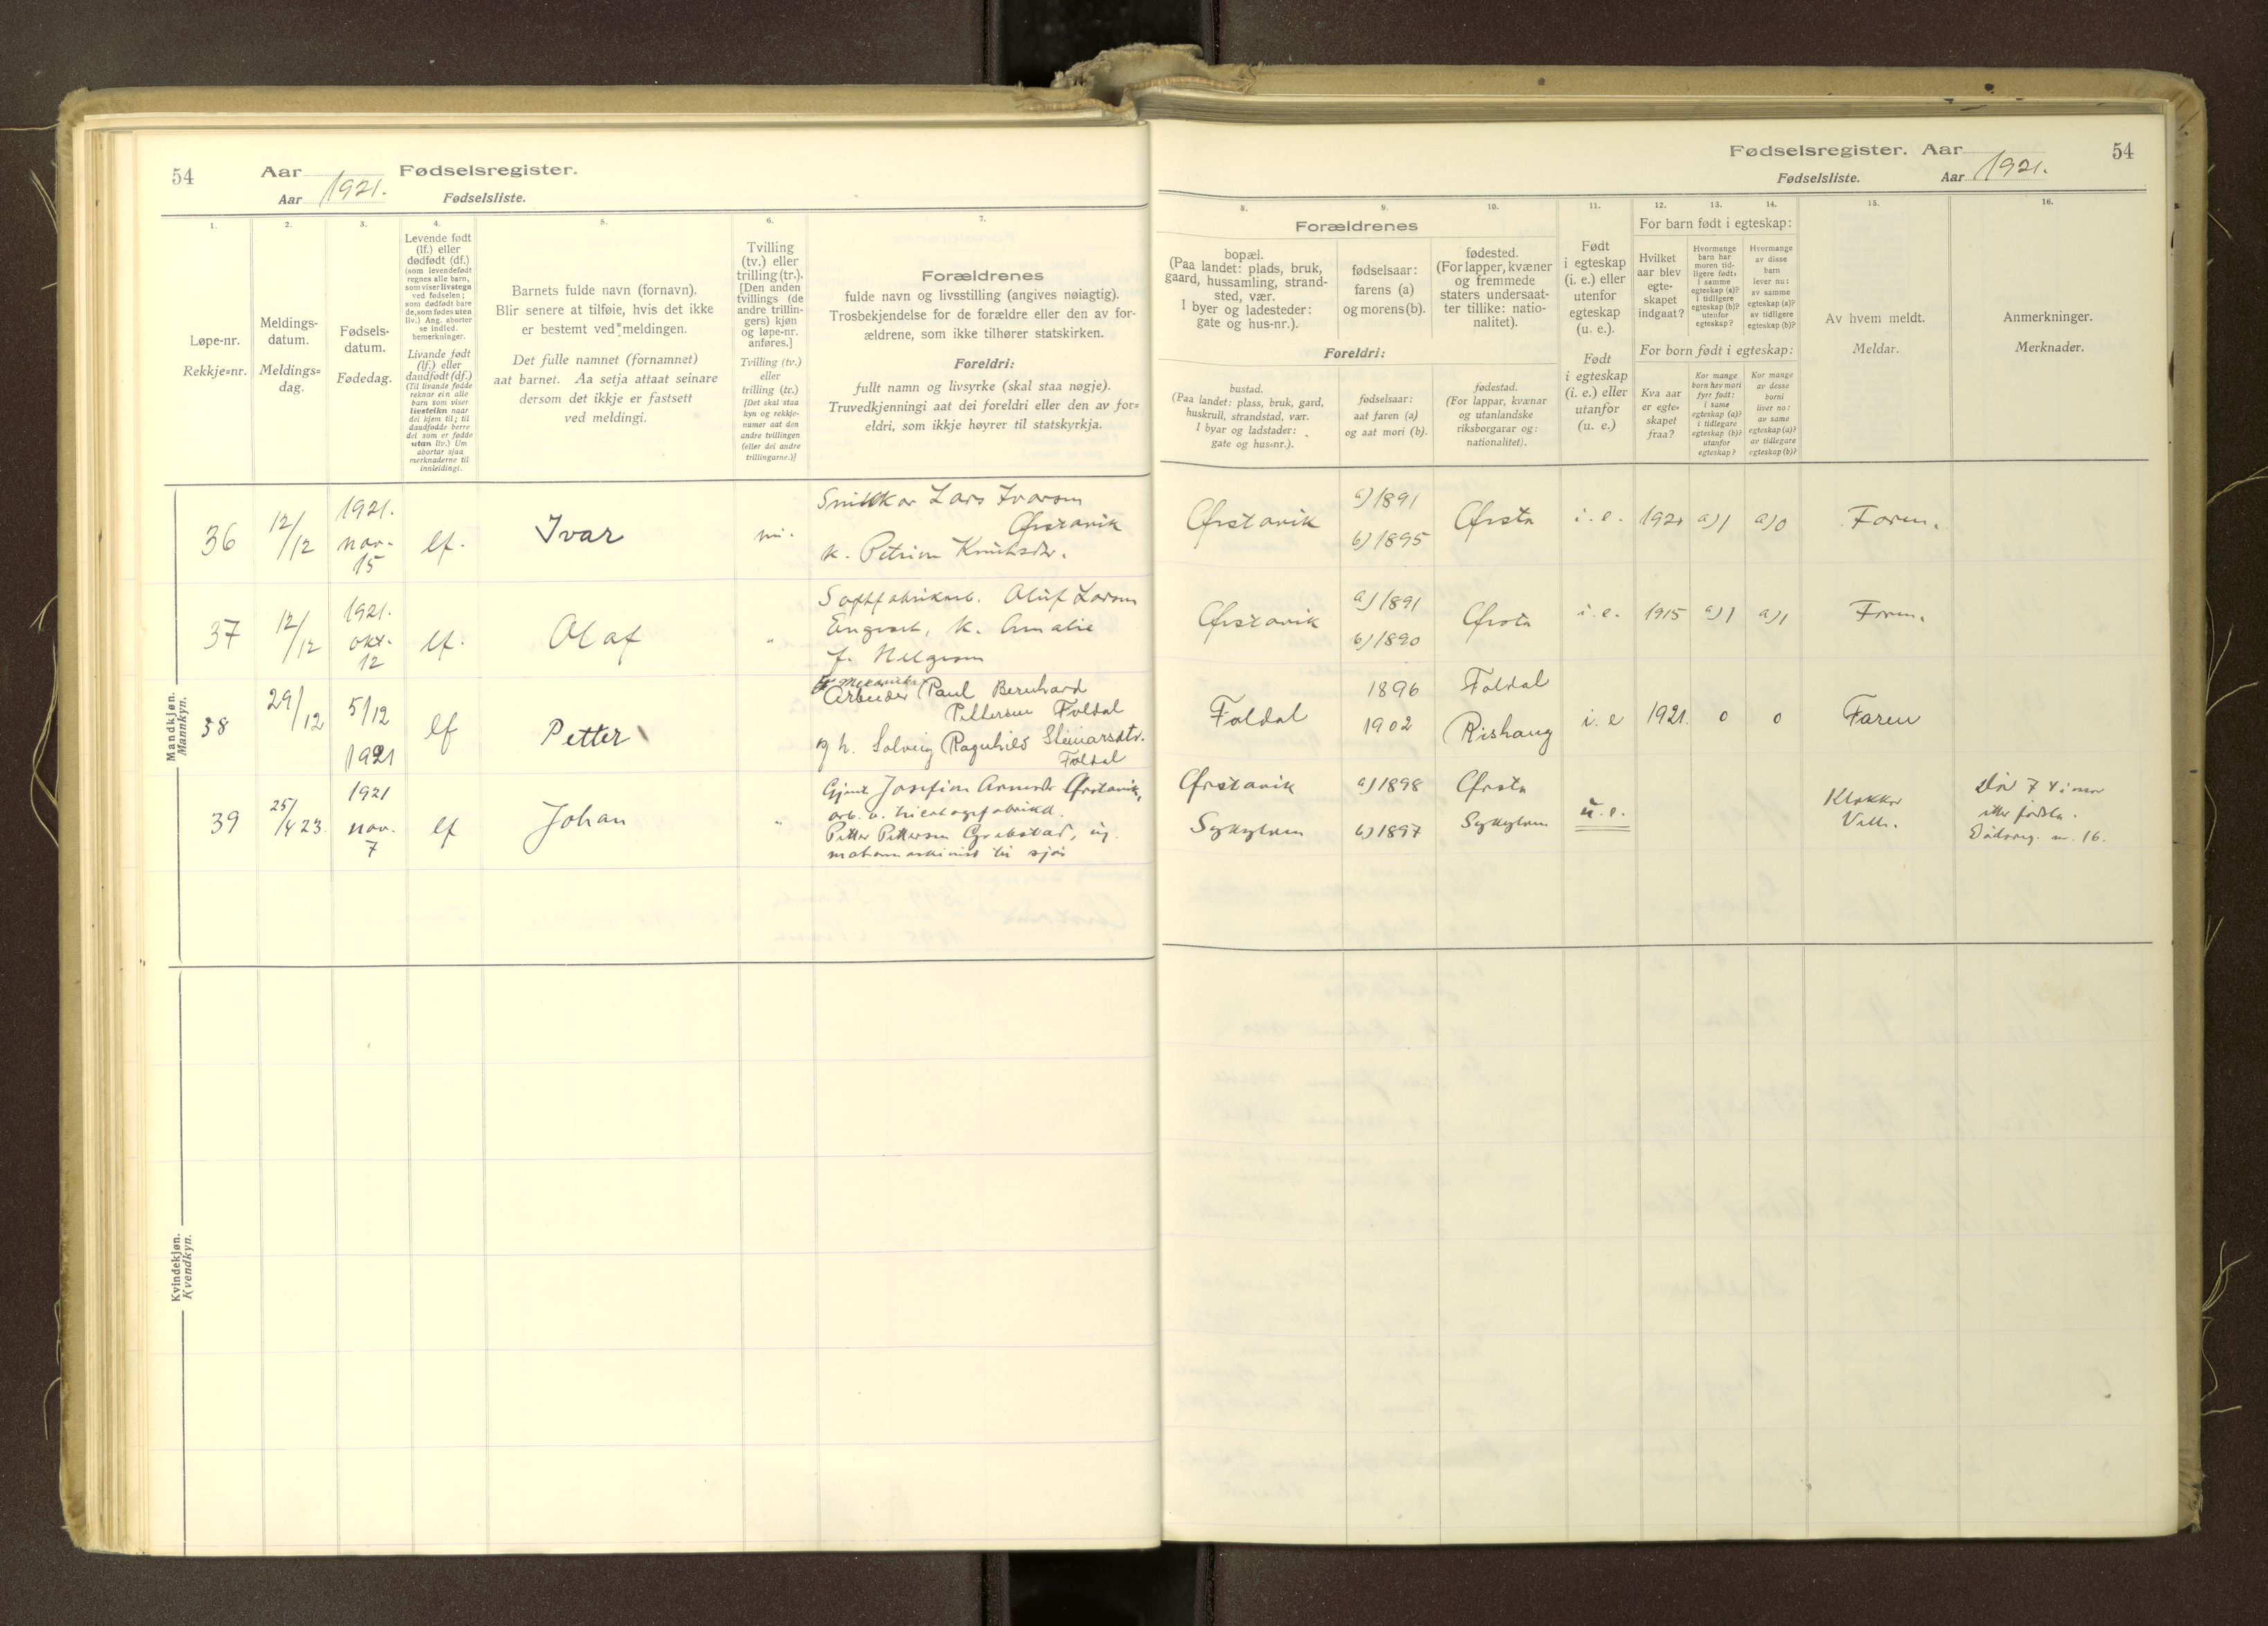 54
Aar 1921. Fødselsregister.
Aar Fødselsliste.
1.
Løpe-nr.
Rekkje=nr.
2.
Meldings-
datum.
Meldings=
dag.
3.
Fødsels-
datum.
Fødedag.
4.
Levende født
(lf.) eller
dødfødt (df.)
(som levendefødt
regnes alle barn,
som viser livstegn
ved fødselen;
som dødfødt bare
de, som fødes uten
liv.) Ang. aborter
se indled.
bemerkninger.
Livande født
(lf.) eller
daudfødt (df.)
(Til livande fødde
reknar ein alle
barn som viser
livsteikn naar
dei kjem til; til
daudfødde berre
dei som er fødde
utan liv.) Um
abortar sjaa
merknaderne til
innleidingi.
5.
Barnets fulde navn (fornavn).
Blir senere at tilføie, hvis det ikke
er bestemt ved meldingen.
Det fulle namnet (fornamnet)
aat barnet. Aa setja attaat seinare
dersom det ikkje er fastsett
ved meldingi.
6.
Tvilling
(tv.) eller
trilling (tr.).
[Den anden
tvillings (de
andre trillin-
gers) kjøn
og løpe-nr.
anføres.]
Tvilling (tv.)
eller
trilling (tr.)
[Det skal staa
kyn og rekkje-
numer aat den
andre tvillingen
(eller dei andre
trillingarne.)]
7.
Forældrenes
fulde navn og livsstilling (angives nøiagtig).
Trosbekjendelse for de forældre eller den av for-
ældrene, som ikke tilhører statskirken.
Foreldri:
fullt namn og livsyrke (skal staa nøgje).
Truvedkjenningi aat dei foreldri eller den av for=
eldri, som ikkje høyrer til statskyrkja.
Mandkjøn.
Mannkyn.
36 12/12 1921. nov. 15 lf. Ivar
Snikkar Lars Ivarson
Ørstavik
k. Petrine Knutsdtr.
37 12/12 1921. okt. 12 lf. Olaf "
Oluf Larson
k. Amalie
f. Helgeson
38 29/12 5/12 1921 lf Petter
Arbeider Paul Bernhard
Pettersen Foldal
og h. Solveig Ragnhild Steinarsdtr.
Foldal
39 25/4 23. 1921 nov. 7 lf Johan "
Gjente Josefine Ørstavik,
arb. v. trikotagefabrikk.
Petter Pettersen Grebstad, ug.
til sjøs
Kvindekjøn.
Kvendkyn.
Fødselsregister. Aar 1921.
54
Fødselsliste. Aar
8.
Forældrenes
bopæl.
(Paa landet: plads, bruk,
gaard, hussamling, strand-
sted, vær.
I byer og ladesteder:
gate og hus-nr.).
9.
fødselsaar:
farens (a)
og morens (b).
10.
fødested.
(For lapper, kvæner
og fremmede
staters undersaat-
ter tillike: natio-
nalitet).
Foreldri:
bustad.
(Paa landet: plass, bruk, gard,
huskrull, strandstad, vær.
I byar og ladstader:
gate og hus=nr.).
fødselsaar:
aat faren (a)
og aat mori (b).
fødestad.
(For lappar, kvænar
og utanlandske
riksborgarar og:
nationalitet).
11.
Født
i egteskap
(i. e.) eller
utenfor
egteskap
(u. e.).
Født
i egteskap
(i. e.) eller
utanfor
(u. e.)
12. 13. 14.
For barn født i egteskap:
Hvilket
aar blev
egte-
skapet
indgaat?
Hvormange
barn har
moren tid-
ligere født:
i samme
egteskap (a)?
i tidligere
egteskap (b)?
utenfor
egteskap?
Hvormange
av disse
barn
lever nu:
av samme
egteskap (a)?
av tidligere
egteskap (b)?
For born født i egteskap:
Kva aar
er egte-
skapet
fraa?
Kor mange
born hev mori
fyrr født:
i same
egteskap (a)?
i tidlegare
egteskap (b)?
utanfor
egteskap?
Kor mange
av desse
borni
liver no:
av same
egteskap (a)?
av tidlegare
egteskap (b)?
15.
Av hvem meldt.
Meldar.
16.
Anmerkninger.
Merknader.
Ørstavik a) 1891 Ørsta i. e. a) 1 a) 0 Faren.
b) 1895
Ørstavik a) 1891 Ørsta i. e. 1915 a) 1 a) 1 Faren.
b) 1890
Foldal 1896 Foldal i. e 1921. 0 0 Faren
1902 Rishaug
Ørstavik a) 1898 Ørsta u. e. Klokkar
Sykylven b) 1897 Sykylven
etter fødsla.
nr. 16.